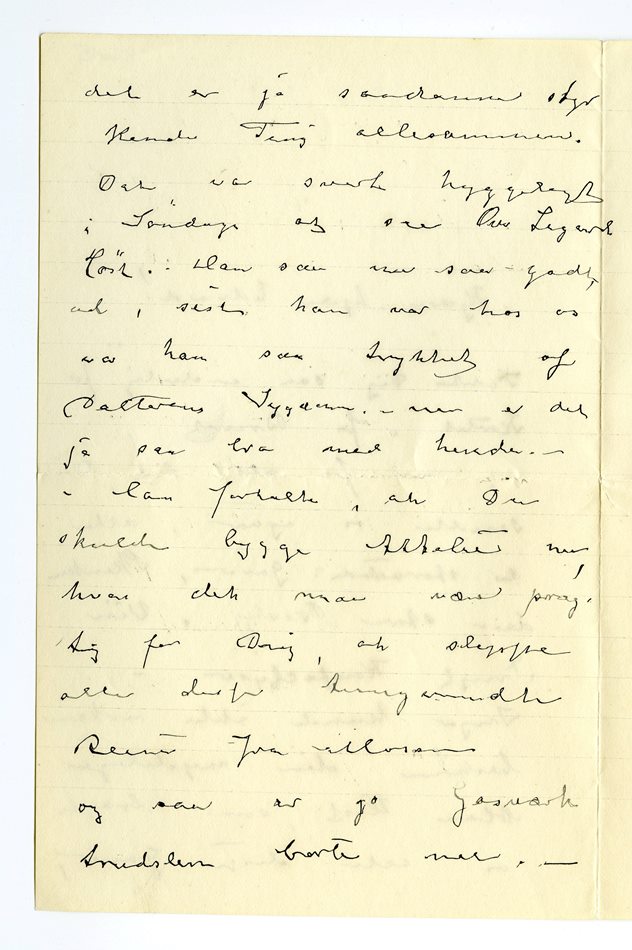 det er jo saadanne styr
kende Ting allesammen.
Det var svært hyggeligt
i Søndags at see Ove
Høst. – Han saa nu saa godt
ud, sidst han var hos os
var han saa trykket af
Datterens Sygdom. – nu er det
jo saa bra med hende. –
– Han fortalte, at Du
skulde bygge Attelié nu,
hvor det maa være præg-
tig for Dig, at slippe
alle de
fra
og saa er jo Gasværk
trudslen borte nu. . —